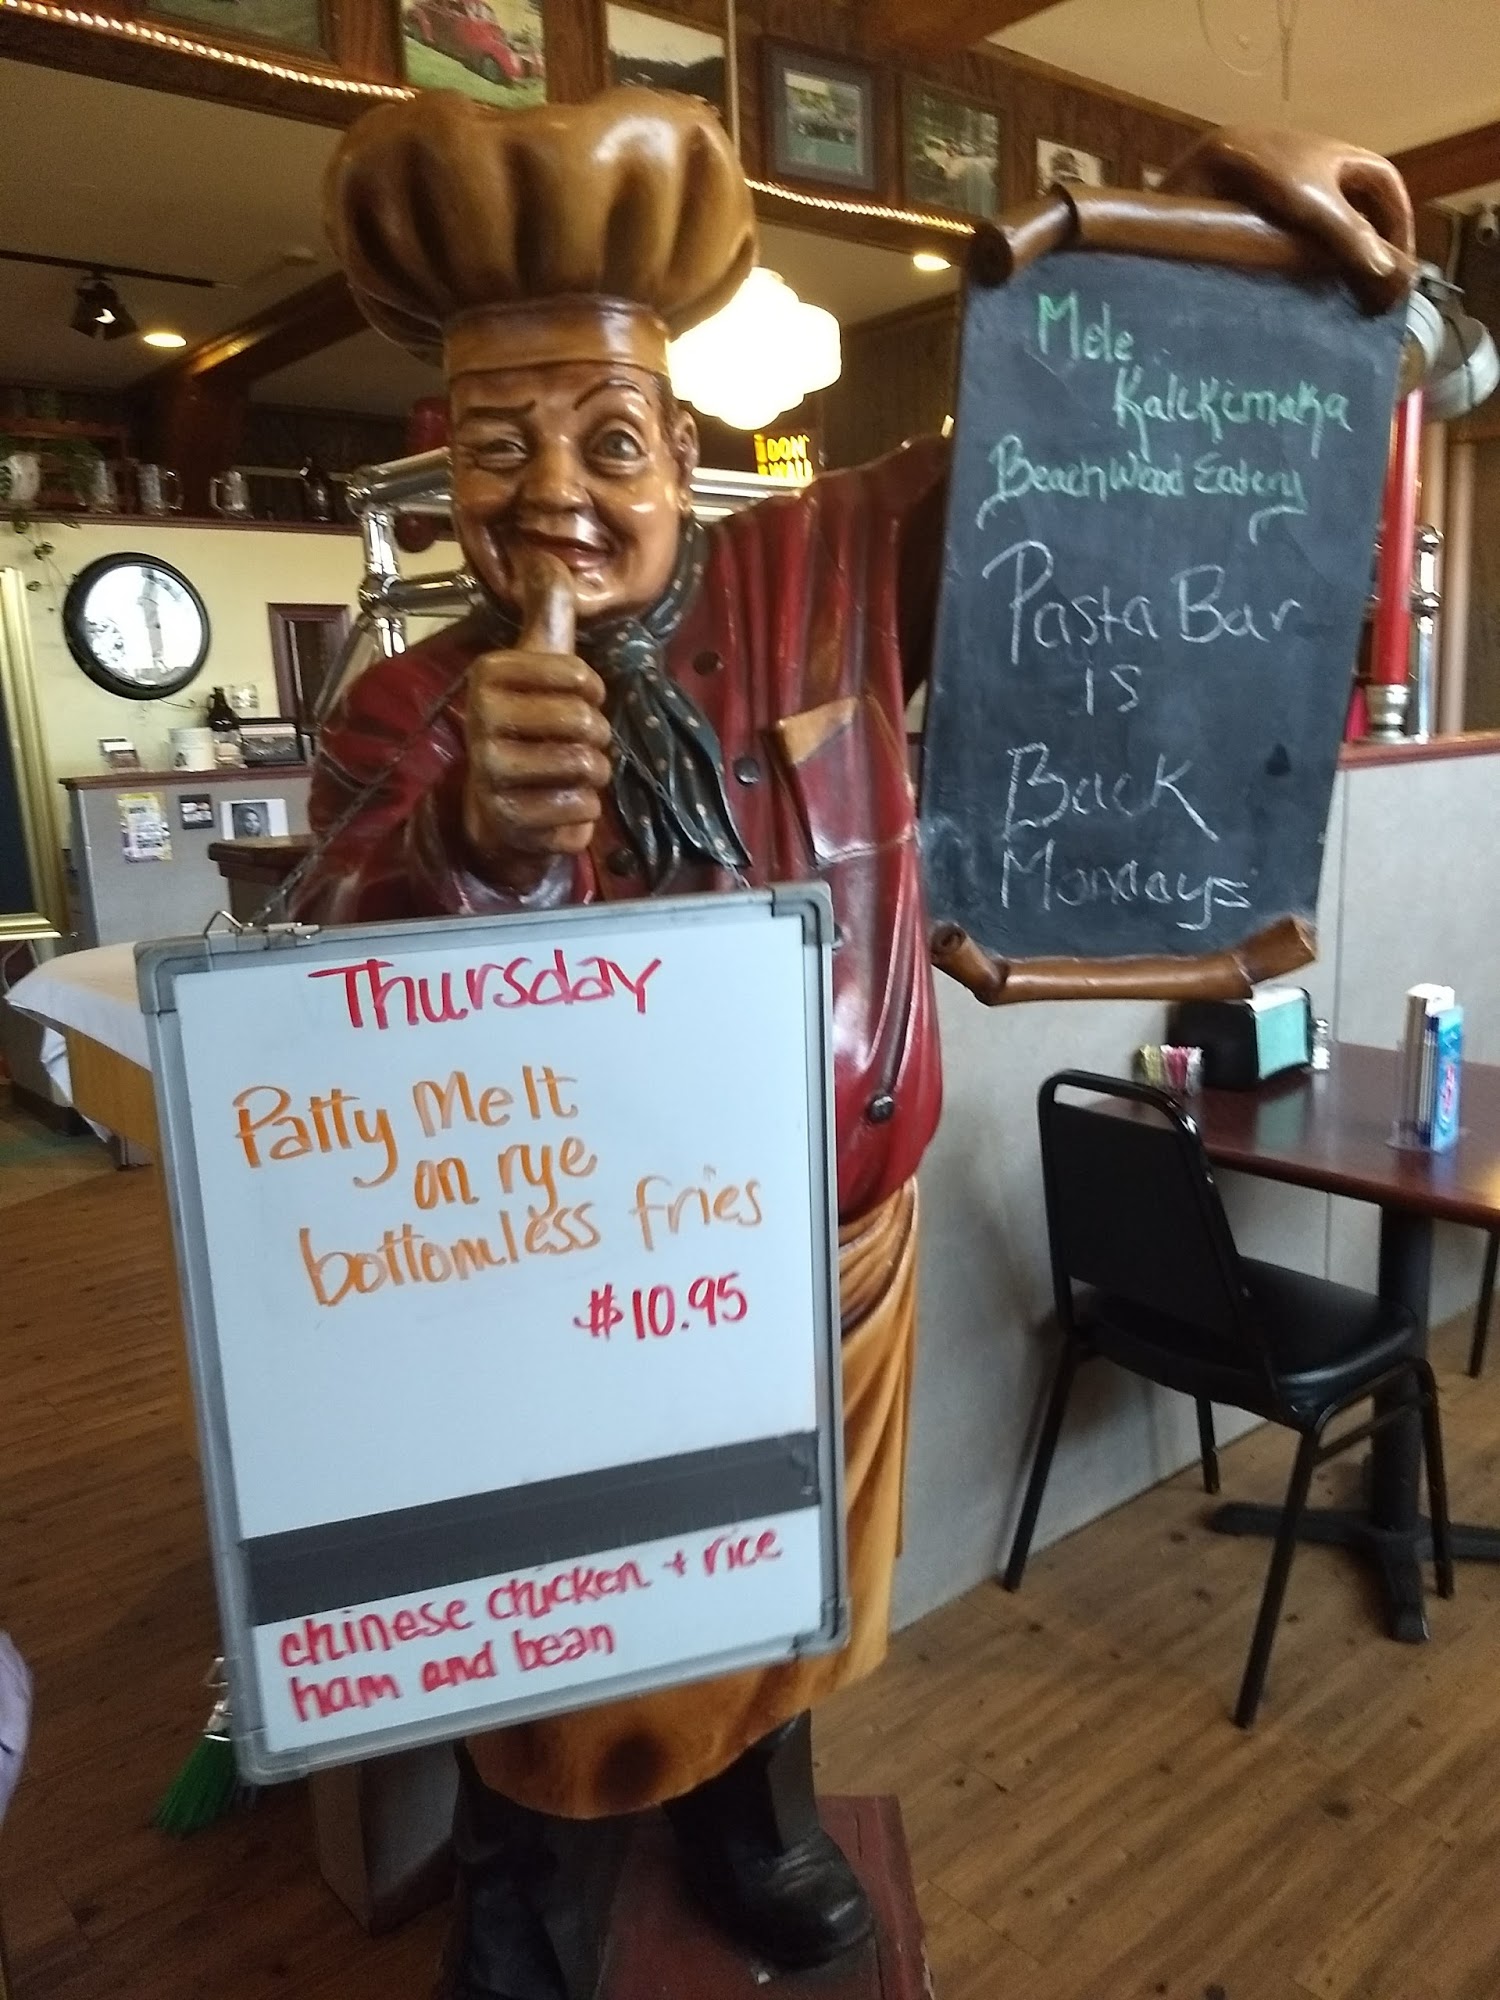 Mele
Kalikimaka
Beachwood Eatery
Pasta Bar
is
Back
Mondays
DON'T
WALK
Thursday
Patty Melt
on rye
bottomless fries
$10.95
chinese chicken + rice
ham and bean